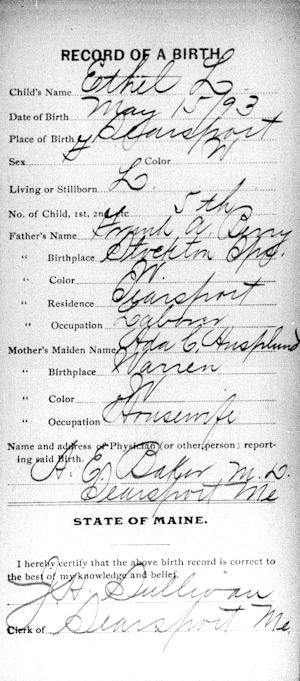 RECORD OF A BIRTH
Child's Name Ethel L.
Date of Birth May 15/93
Place of Birth Searsport
Sex F Color W
Living or Stillborn L.
No. of Child, 1st, 2nd, etc 5th
Father's Name Frank A. Perry
" Birthplace Stockton Spgs.
" Color W
" Residence Searsport
" Occupation Laborer
Mother's Maiden Name Ada C.
" Birthplace Warren
" Color W
" Occupation Housewife
Name and address of Physician (or other person) report-
ing said Birth.
H. E. Baker M. D.
Searsport Me
STATE OF MAINE.
I hereby certify that the above birth record is correct to
the best of my knowledge and belief.
J. H. Sullivan
Clerk of Searsport Me.